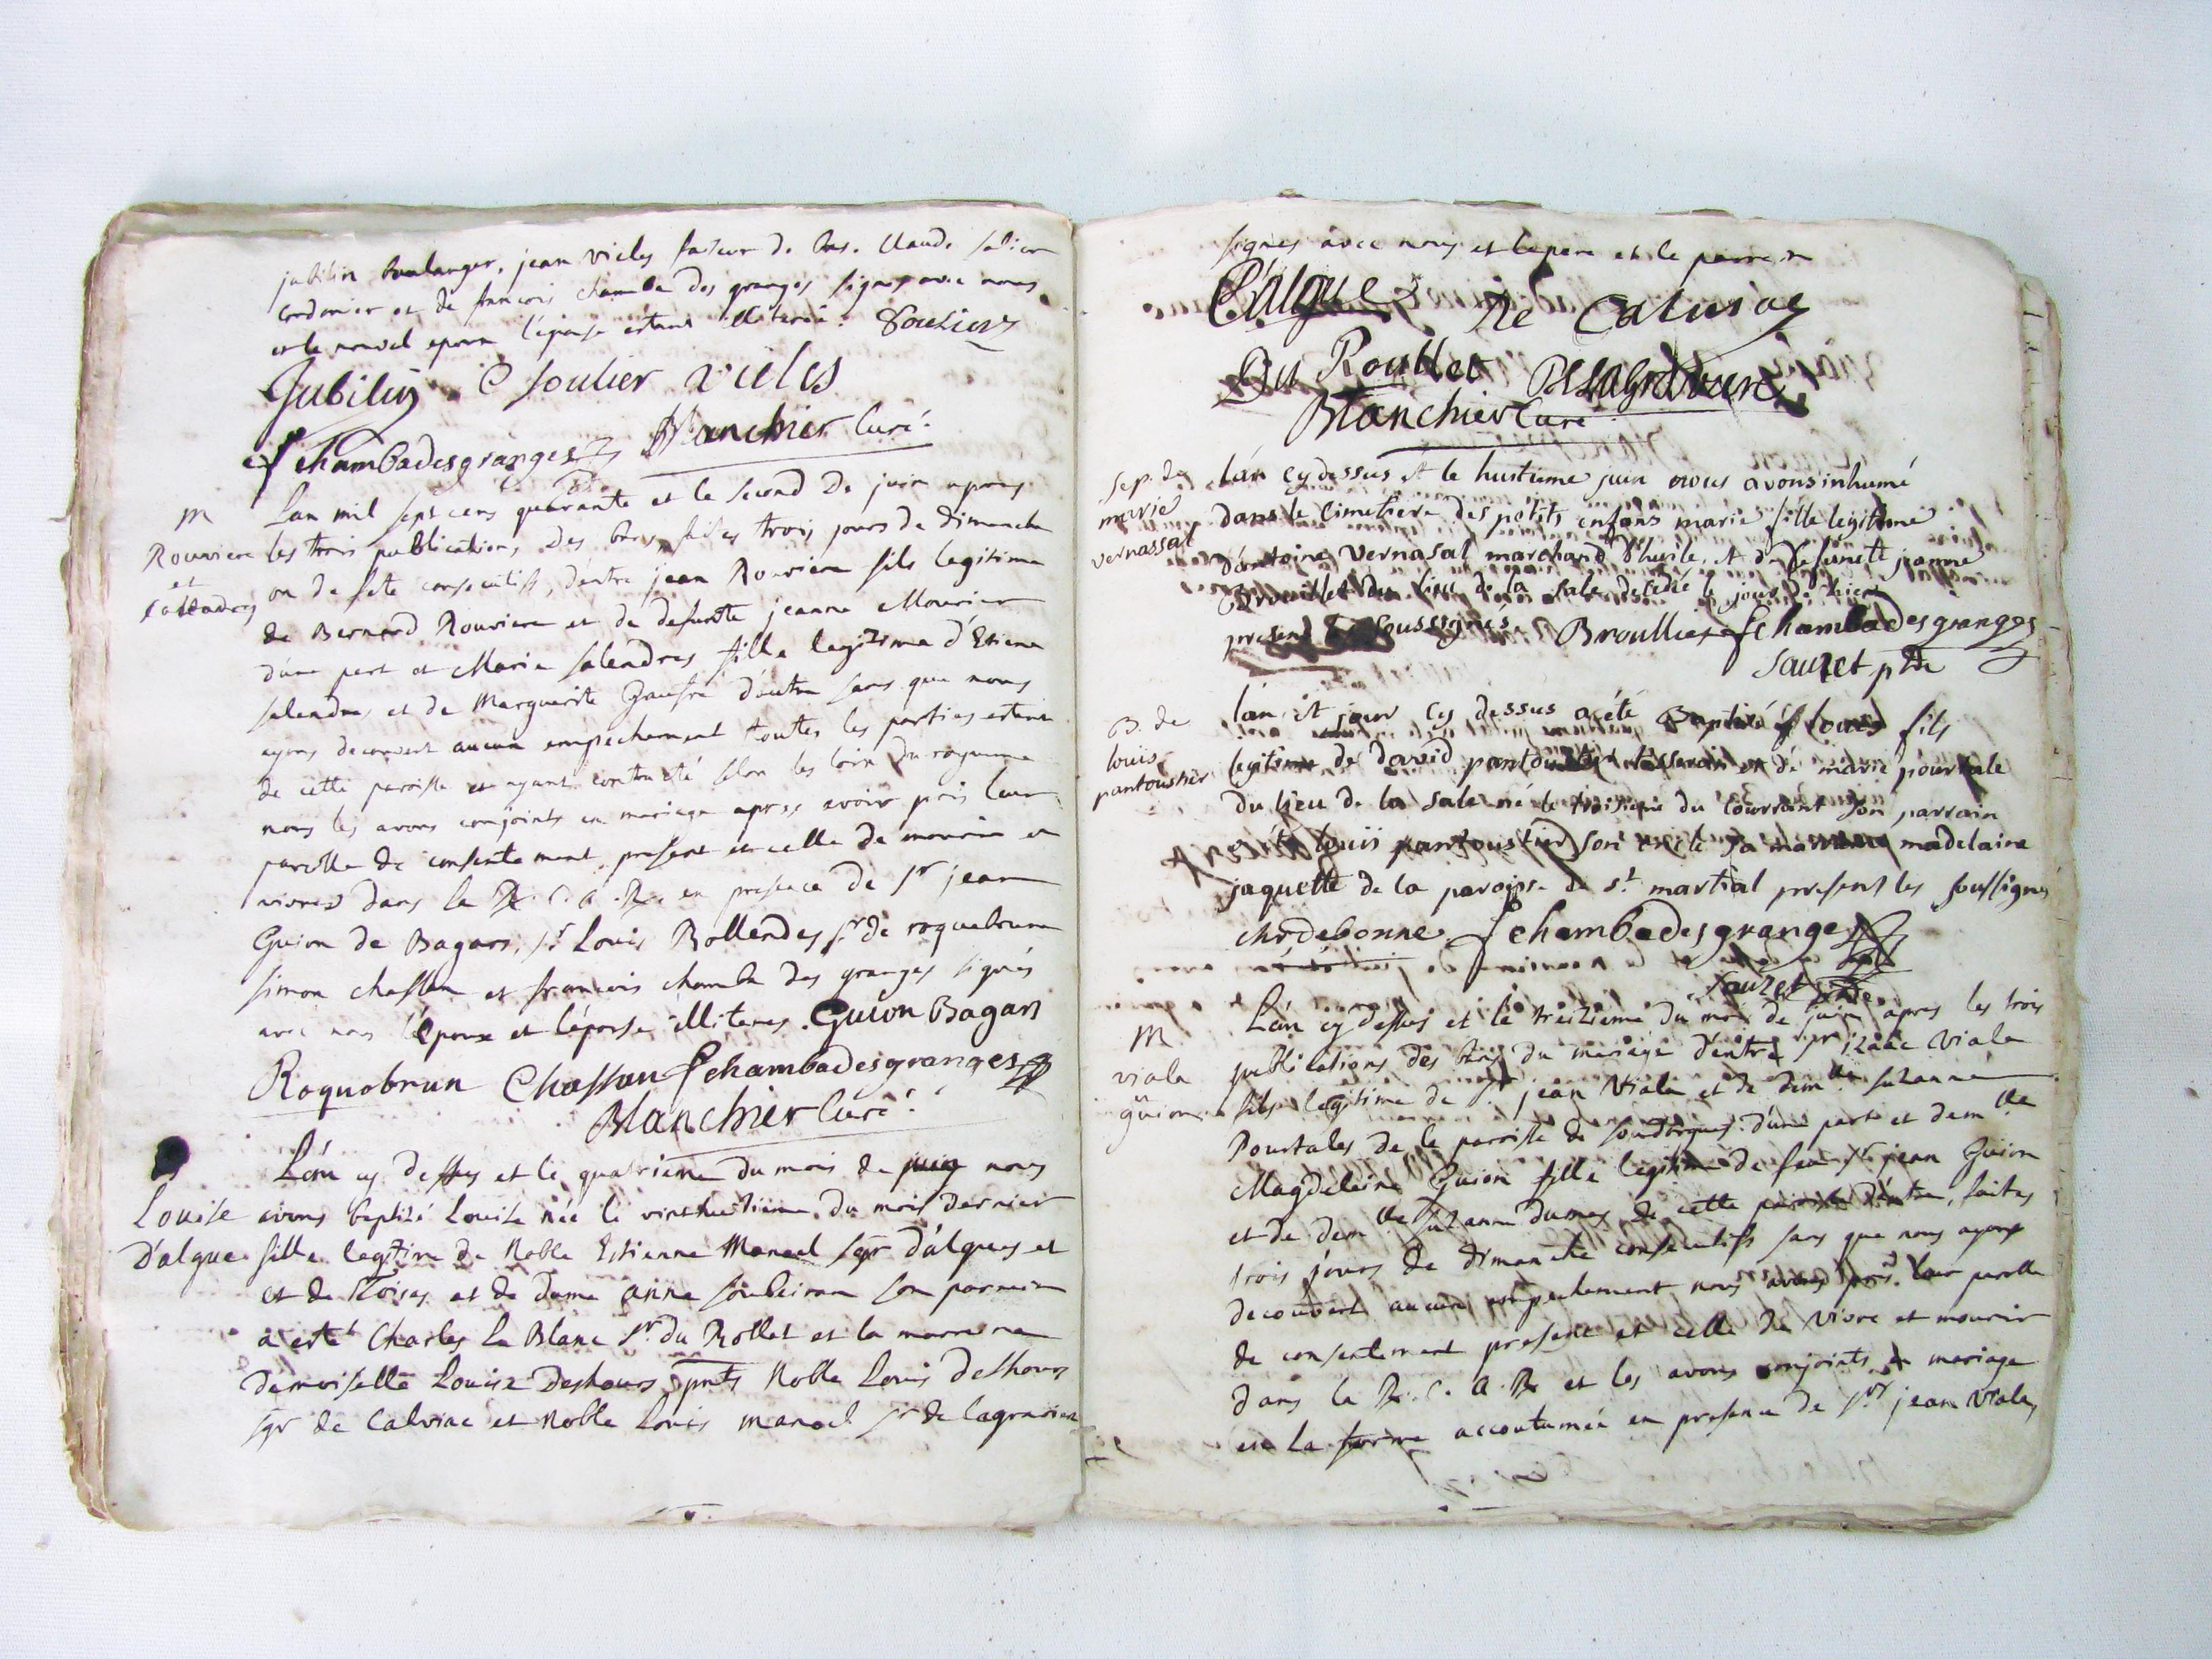 jubilin boulanger, jean vieles faiseur de bas. Claude solier
cordonier et de francois chamba des granges signes avec nous
et le nouvel epoux l'epouse estant illiterée. Soulier
Jubilin C soulier vieles
f chambadesgranges Blanchier Curé.
M
Rouviere
et
sallendres
Lan mil sept cens quarante et le second de juin apres
les trois publications des bans faites trois jours de dimanche
ou de fete consecutifs, d'entre jean Rouviere fils legitime
de Bernard Rouviere et de defunte jeanne Mourier
d'une part et Marie salendres fille legitime d'Etiene
salendres et de Marguerite Gaufre d'autre sans que nous
ayons decouvert aucun empechement toutes les parties estant
de cette paroisse et ayant contracté selon les loix du royaume
nous les avons conjoints en mariage apres avoir pris leur
parolle de consentement present et celle de mourir et
vivre dans la R. C. A. R. en presence de sr jean
Guion de Bagars, sr Louis Rollendes sr de roquebrune
simon chassan et francois chamba des granges signés
avec nous l'epoux et l'epouse illiteres. Guion Bagars
Roquobrun Chassan f chambadesgranges
Blanchier Curé.
Louise
D'algue
L'an cy dessus et le quatrieme du mois de juin nous
avons baptizé Louise née le vinthuitieme du mois dernier
fille legitime de Noble Estienne Manoel sgr d'algues et
et de Noises et de dame anne soubeiran son parrein
a esté Charles Le Blanc sr du Rollet et la marrene
demoiselle Louise Deshours pnts Noble Louis deshours
sgr de Calviac et Noble Louis manoel sr de lagraviere
signes avec nous et le pere et le parrein
D'algue De Calviac
Du Roullet DeLagraviere
Blanchier Curé
sep. de
marie
vernassal
l'an cy dessus et le huitieme juin nous avons inhumé
dans le cimetiere des petits enfans marie fille legitime
d'antoine vernasal marchand d'huile, et de defuncte jeanne
Brouillet du lieu de la sale decedée le jour d'hier
presens soussignés. Broullet f chambadesgranges
Sauzet ptre
B. de
louis
pantoustier
l'an et jour cy dessus a été Baptizé louis fils
legitime de david pantoustier tisserain et de marie pourtale
du lieu de la sale né le troisieme du courrant son parrain
a été louis pantoustier son oncle sa marraine madelaine
jaquette de la paroisse de st martial presens les soussignes
chr debonne f chambadesgranges
Sauzet ptre
M
viala
guion
L'an cy dessus et le treizieme du mois de juin apres les trois
publications des bans du mariage d'entre sr izaac viala
fils legitime de sr jean viala et de demlle suzanne
Pourtales de la paroisse de soudorgues d'une part et demlle
Magdeleine Guion fille legitime de feu sr jean Guion
et de demlle suzanne dumas de cette paroisse d'autre, faites
trois jours de dimanche consecutifs sans que nous ayons
decouvert aucun empechement nous avons pris leur parolle
de consentement present et celle de vivre et mourir
dans la R. C. A. R. et les avons conjoints en mariage
en la forme accoutumée en presence de srs jean viala,